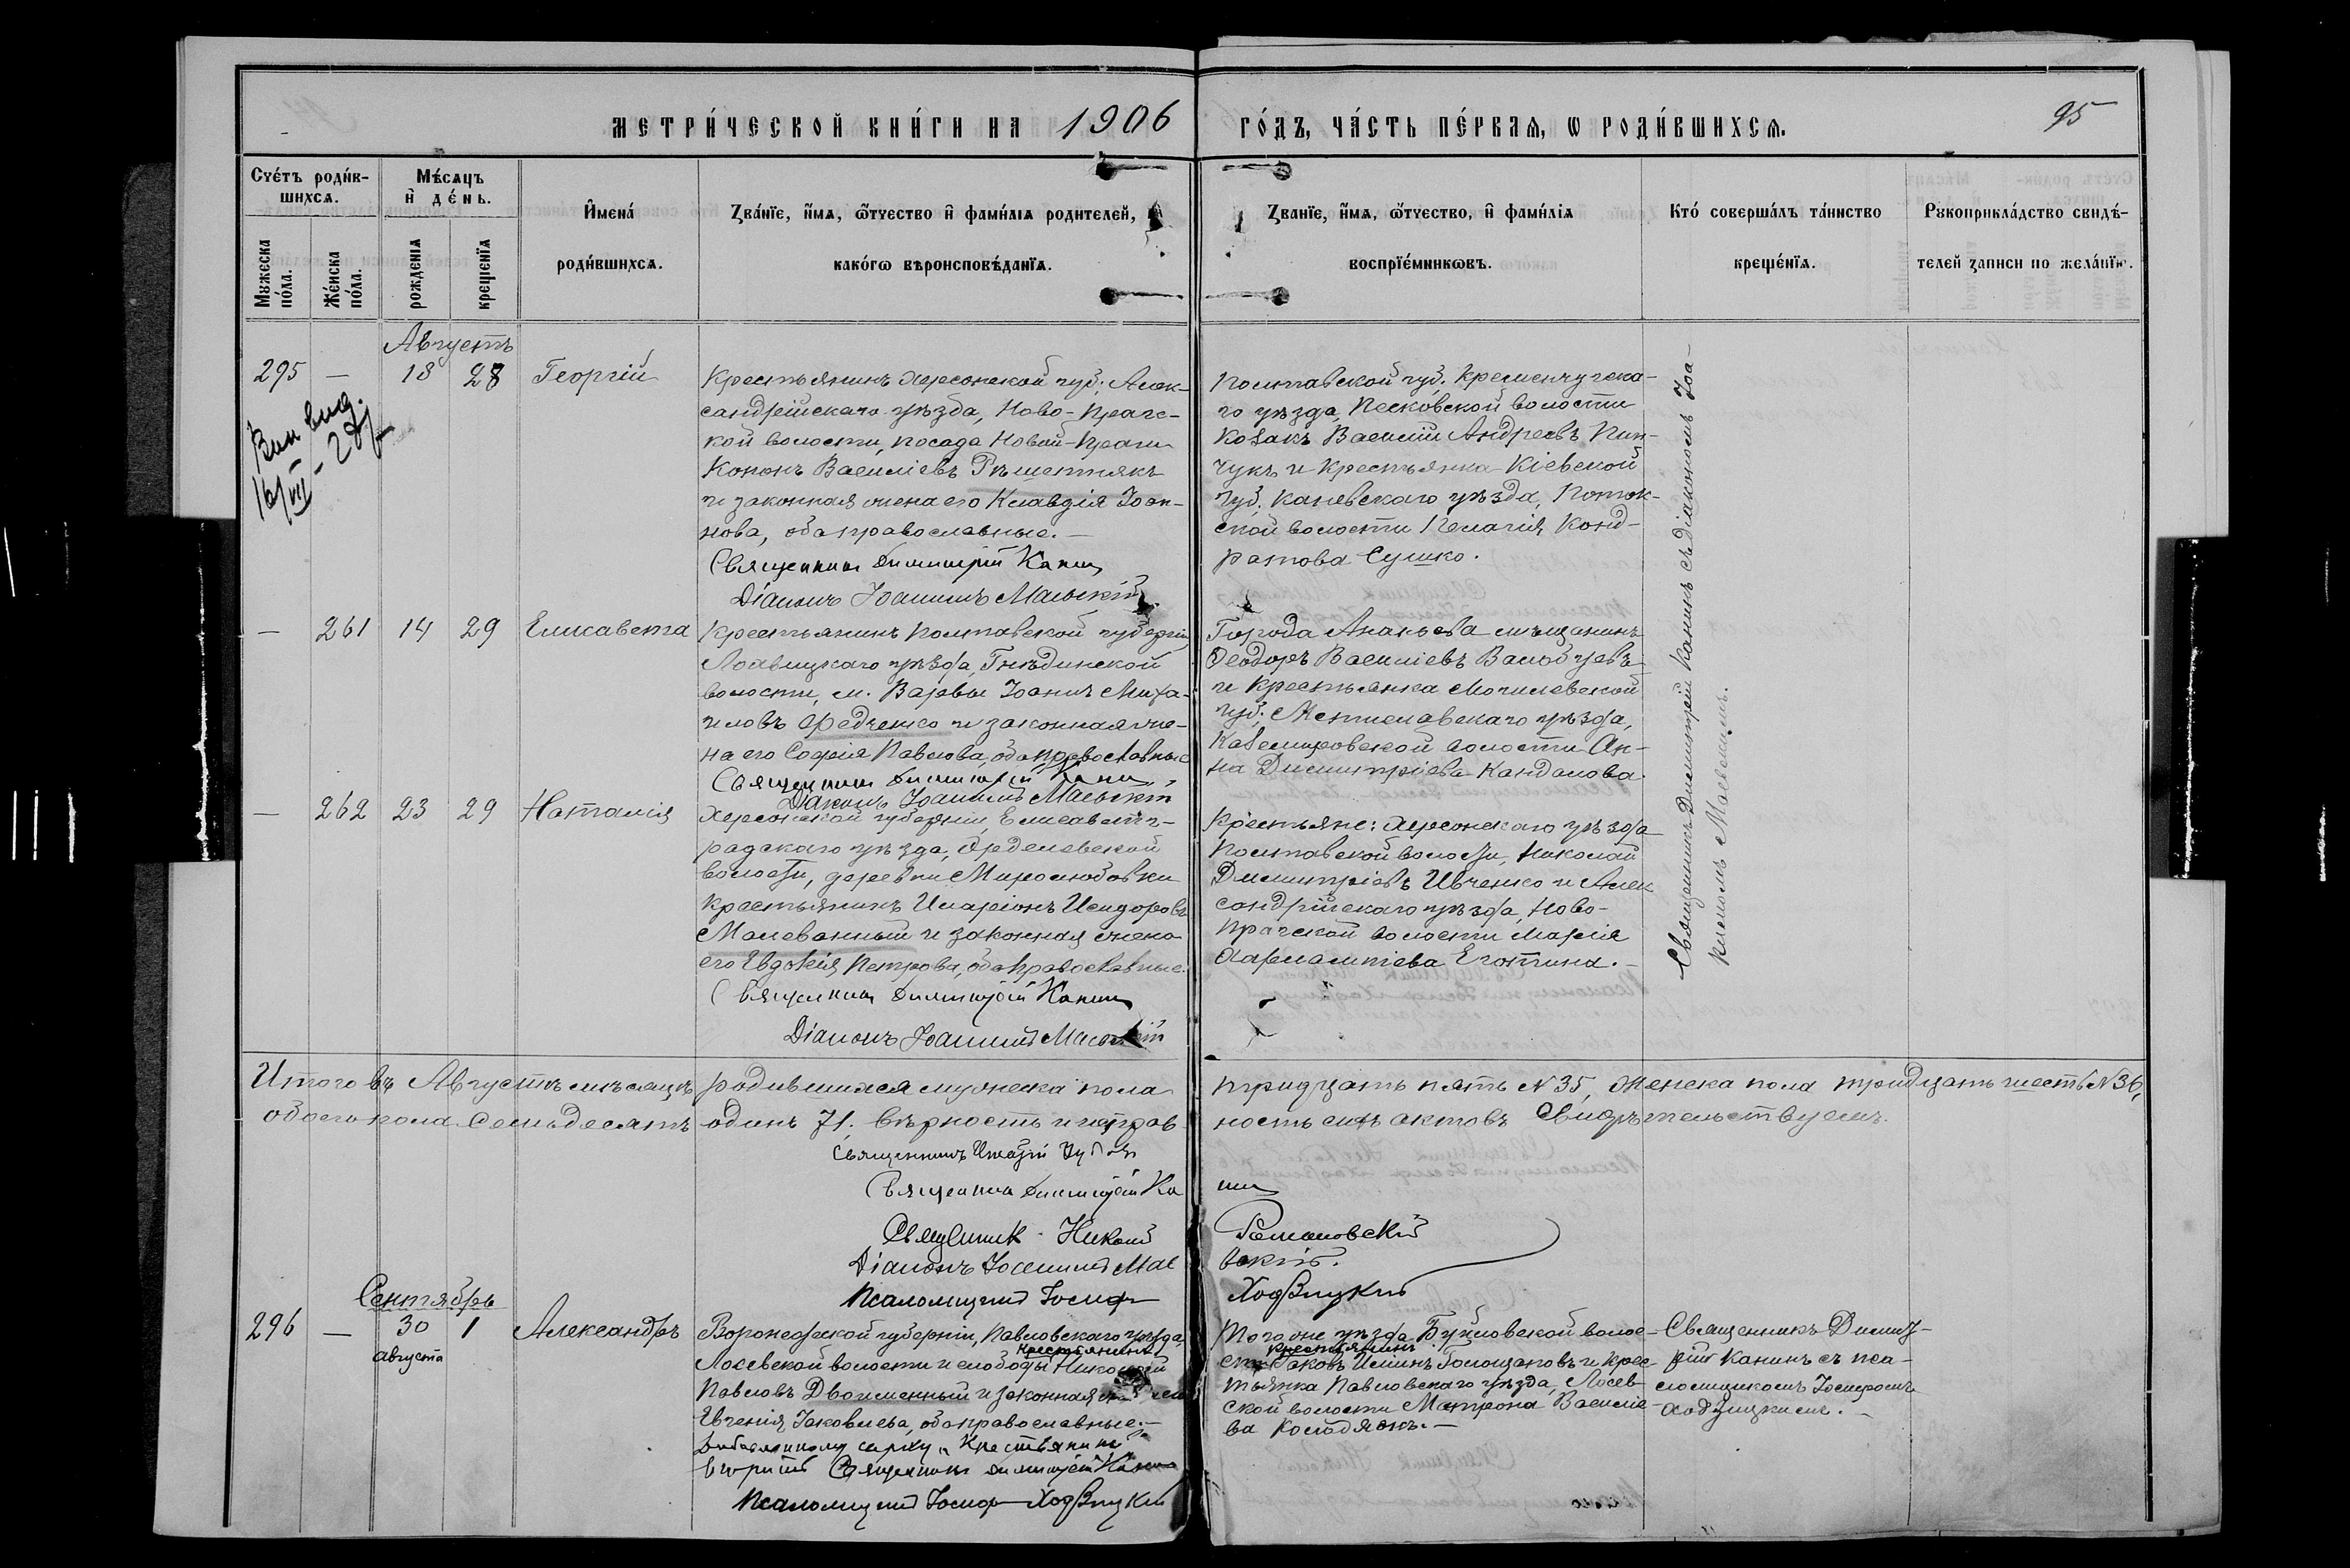 МЕТРИ́ЧЕСКОЙ КНИ́ГИ НА 1906 ГО́ДЪ, ЧА́СТЬ ПЕ́РВАЯ, Ѡ РОДИ́ВШИХСѦ.
95
Счéтъ роди́в-
шихсѧ.
Мꙋжеска
пóла.
Жéнска
пóла.
Мѣ́сѧцъ
и҆ дéнь.
рожденїѧ
крещенїѧ
И҆мена́
роди́вшихсѧ.
Зва́нїе, и҆́мѧ, ѻ҆́тчество и҆ фамѝлїѧ родителей,
како́гѡ вѣроисповѣ́данїѧ.
Зва́нїе, и҆́мѧ, ѻ҆́тчество, и҆ фамѝлїѧ
воспрїе́мникѡвъ.
Кто́ соверша́лъ та́инство
креще́нїѧ.
Рꙋкоприкла́дство свидѣ́-
телей записи по жела́нїю.
Августъ
295 — 18 28 Георгій
16/VII - 28
Крестьянинъ Херсонской губ. Алек-
сандрійскаго уѣзда, Ново-Праг-
ской волости, посада Новой-Праги
Кононъ Василіевъ Рѣшетнякъ
и законная жена его Клавдія Іоан-
нова, оба православные.—
Священникъ Димитрій Канинъ
Діаконъ Іоаннъ Маевскій
Полтавской губ. Кременчугска-
го уѣзда, Песковской волости
козакъ Василій Андреевъ Пин-
чукъ и крестьянка Кіевской
губ. Каневскаго уѣзда, Поток-
ской волости Пелагія Конд-
ратова Сушко.
Священникъ Димитрій Канинъ съ діакономъ Іоа-
нномъ Маевскимъ.
— 261 14 29 Елисавета
Крестьянинъ Полтавской губерніи,
Лохвицкаго уѣзда, Гнѣдинской
волости, м. Варвы Іоаннъ Миха-
иловъ Федченко и законная же-
на его Софія Павлова, оба православные
Священникъ Димитрій Канинъ
Діаконъ Іоаннъ Маевскій
Города Ананьева мѣщанинъ
Ѳеодоръ Василіевъ
и крестьянка Могилевской
губ. Мстиславскаго уѣзда,
волости Ан-
на Димитріева Кандалова.
— 262 23 29 Наталія
Херсонской губерніи, Елисаветг-
радскаго уѣзда,
волости, деревни Миролюбовки
крестьянинъ Иларіонъ Исидоровъ
Малеванный и законная жена
его Евдокія Петрова, оба православные.
Священникъ Димитрій Канинъ
Діаконъ Іоаннъ Маевскій
Крестьяне: Херсонскаго уѣзда
Полтавской волости, Николай
Димитріевъ Ивченко и Алек
сандрійскаго уѣзда, Ново-
Прагской волости Марія
Харлампіева Еготина.—
Итого въ Августѣ мѣсяцѣ родившихся мужеска пола тридцать пять №35, женска пола тридцать шесть №36,
обоего пола семьдесятъ одинъ 71. Вѣрность и исправность сихъ актовъ свидѣтельствуемъ.
Священникъ
Священникъ Димитрій Канинъ
Священникъ Николай Романовскій
Діаконъ Іоаннъ Маевскій.
Псаломщикъ Іосифъ Ходзицкій
Сентябрь
296 — 30 1 Александръ
августа
Воронежской губерніи, Павловскаго уѣзда,
крестьянинъ
Лосевской волости и слободы Николай
Павловъ Двоименный и законная жена его
Евгенія Іаковлева, оба православные.—
Добавленному сверху „крестьянинъ"
вѣрить Священникъ Димитрій Канинъ
Псаломщикъ Іосифъ Ходзицкій
Того же уѣзда Бутовской волос-
крестьянинъ
сти Іаковъ Ильинъ Голощаповъ и крес-
тьянка Павловскаго уѣзда, Лосев-
ской волости Матрона Василіе-
ва Колодяжъ.—
Священникъ Димит-
рій Канинъ съ пса-
ломщикомъ Іосифомъ
Ходзицкимъ.—